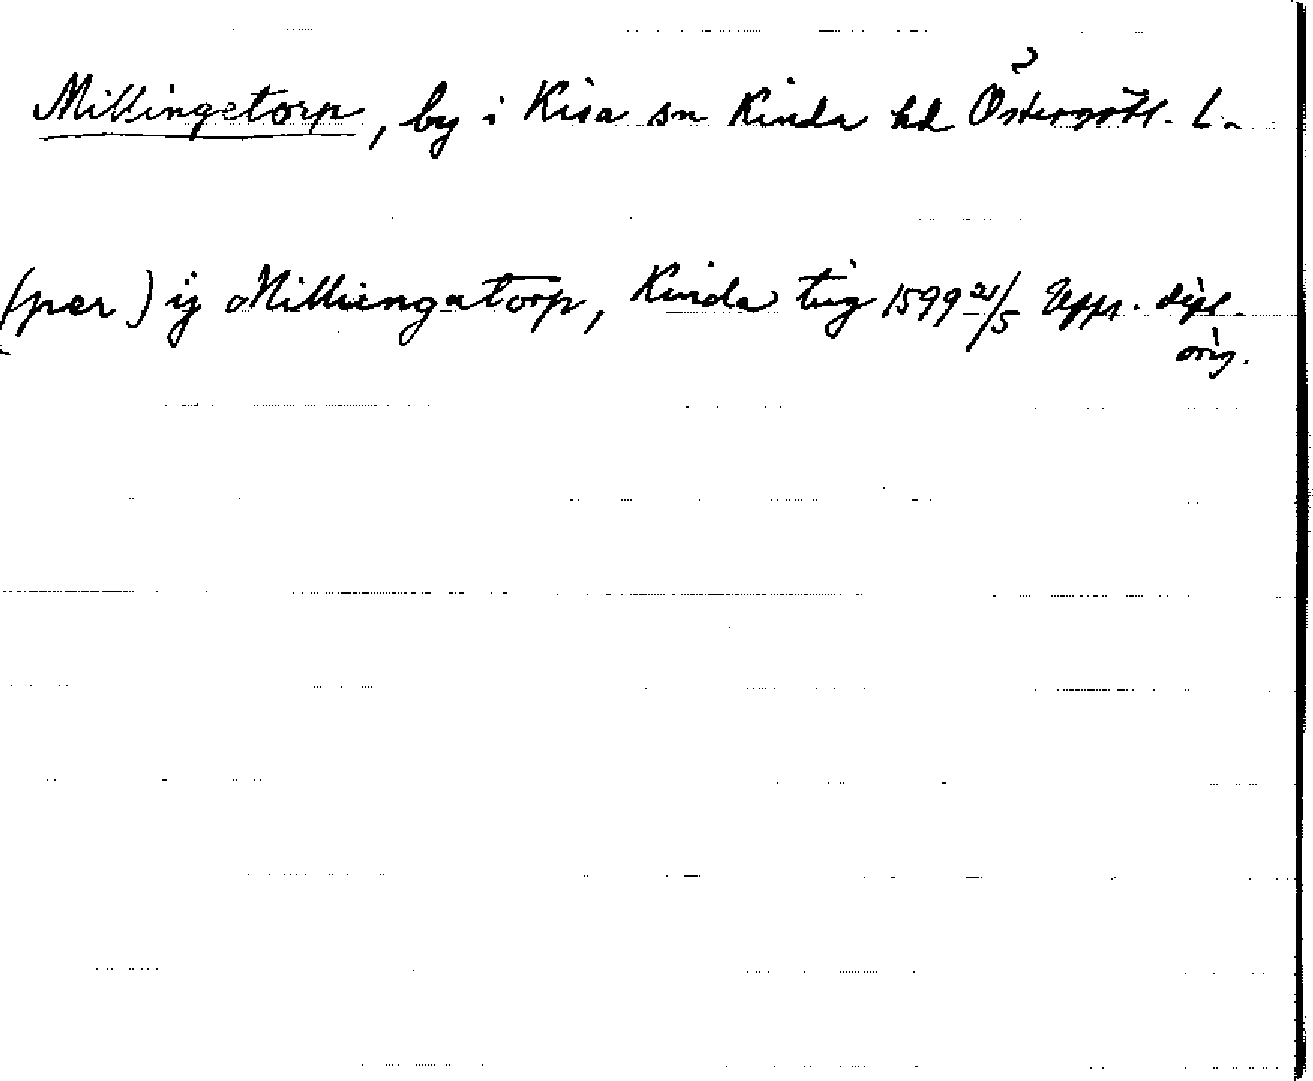 Millingetorp, by i Kisa sn Kinda hd Östergötl. L.
(per) ij Millingatorp, Kinda ting 1599 21/5 Upps. dipl.
orig.